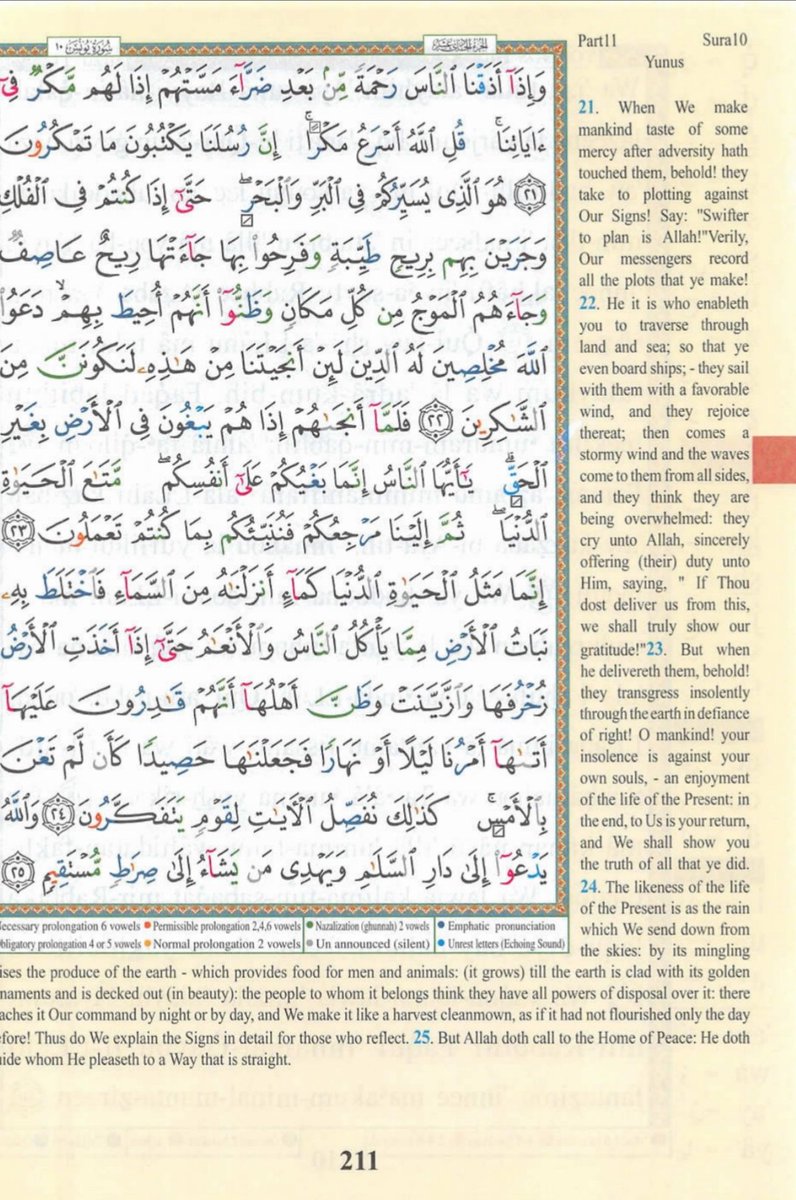 سُورَةُ يُونُسَ ١٠
الجزء الحادي عشر
Part11 Sura10
Yunus
وَإِذَآ أَذَقْنَا ٱلنَّاسَ رَحْمَةً مِّنۢ بَعْدِ ضَرَّآءَ مَسَّتْهُمْ إِذَا لَهُم مَّكْرٌ فِىٓ
ءَايَاتِنَا ۚ قُلِ ٱللَّهُ أَسْرَعُ مَكْرًا ۚ إِنَّ رُسُلَنَا يَكْتُبُونَ مَا تَمْكُرُونَ
﴿٢١﴾ هُوَ ٱلَّذِى يُسَيِّرُكُمْ فِى ٱلْبَرِّ وَٱلْبَحْرِ ۖ حَتَّىٰٓ إِذَا كُنتُمْ فِى ٱلْفُلْكِ
وَجَرَيْنَ بِهِم بِرِيحٍ طَيِّبَةٍ وَفَرِحُوا۟ بِهَا جَآءَتْهَا رِيحٌ عَاصِفٌ
وَجَآءَهُمُ ٱلْمَوْجُ مِن كُلِّ مَكَانٍ وَظَنُّوٓا۟ أَنَّهُمْ أُحِيطَ بِهِمْ ۙ دَعَوُا۟
ٱللَّهَ مُخْلِصِينَ لَهُ ٱلدِّينَ لَئِنْ أَنجَيْتَنَا مِنْ هَٰذِهِۦ لَنَكُونَنَّ مِنَ
ٱلشَّٰكِرِينَ ﴿٢٢﴾ فَلَمَّآ أَنجَىٰهُمْ إِذَا هُمْ يَبْغُونَ فِى ٱلْأَرْضِ بِغَيْرِ
ٱلْحَقِّ ۗ يَٰٓأَيُّهَا ٱلنَّاسُ إِنَّمَا بَغْيُكُمْ عَلَىٰٓ أَنفُسِكُم ۖ مَّتَٰعَ ٱلْحَيَوٰةِ
ٱلدُّنْيَا ۖ ثُمَّ إِلَيْنَا مَرْجِعُكُمْ فَنُنَبِّئُكُم بِمَا كُنتُمْ تَعْمَلُونَ ﴿٢٣﴾
إِنَّمَا مَثَلُ ٱلْحَيَوٰةِ ٱلدُّنْيَا كَمَآءٍ أَنزَلْنَٰهُ مِنَ ٱلسَّمَآءِ فَٱخْتَلَطَ بِهِۦ
نَبَاتُ ٱلْأَرْضِ مِمَّا يَأْكُلُ ٱلنَّاسُ وَٱلْأَنْعَٰمُ حَتَّىٰٓ إِذَآ أَخَذَتِ ٱلْأَرْضُ
زُخْرُفَهَا وَٱزَّيَّنَتْ وَظَنَّ أَهْلُهَآ أَنَّهُمْ قَٰدِرُونَ عَلَيْهَآ
أَتَىٰهَآ أَمْرُنَا لَيْلًا أَوْ نَهَارًا فَجَعَلْنَٰهَا حَصِيدًا كَأَن لَّمْ تَغْنَ
بِٱلْأَمْسِ ۚ كَذَٰلِكَ نُفَصِّلُ ٱلْءَايَٰتِ لِقَوْمٍ يَتَفَكَّرُونَ ﴿٢٤﴾ وَٱللَّهُ
يَدْعُوٓا۟ إِلَىٰ دَارِ ٱلسَّلَٰمِ وَيَهْدِى مَن يَشَآءُ إِلَىٰ صِرَٰطٍ مُّسْتَقِيمٍ ﴿٢٥﴾
21. When We make
mankind taste of some
mercy after adversity hath
touched them, behold! they
take to plotting against
Our Signs! Say: "Swifter
to plan is Allah!"Verily,
Our messengers record
all the plots that ye make!
22. He it is who enableth
you to traverse through
land and sea; so that ye
even board ships; - they sail
with them with a favorable
wind, and they rejoice
thereat; then comes a
stormy wind and the waves
come to them from all sides,
and they think they are
being overwhelmed: they
cry unto Allah, sincerely
offering (their) duty unto
Him, saying, " If Thou
dost deliver us from this,
we shall truly show our
gratitude!"23. But when
he delivereth them, behold!
they transgress insolently
through the earth in defiance
of right! O mankind! your
insolence is against your
own souls, - an enjoyment
of the life of the Present: in
the end, to Us is your return,
and We shall show you
the truth of all that ye did.
24. The likeness of the life
of the Present is as the rain
which We send down from
the skies: by its mingling
ises the produce of the earth - which provides food for men and animals: (it grows) till the earth is clad with its golden
naments and is decked out (in beauty): the people to whom it belongs think they have all powers of disposal over it: there
aches it Our command by night or by day, and We make it like a harvest cleanmown, as if it had not flourished only the day
efore! Thus do We explain the Signs in detail for those who reflect. 25. But Allah doth call to the Home of Peace: He doth
uide whom He pleaseth to a Way that is straight.
ecessary prolongation 6 vowels Permissible prolongation 2,4,6 vowels Nazalization (ghunnah) 2 vowels Emphatic pronunciation
bligatory prolongation 4 or 5 vowels Normal prolongation 2 vowels Un announced (silent) Unrest letters (Echoing Sound)
211